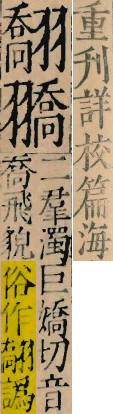 重刊詳校篇海
二羣濁巨嬌切音
喬飛貌
俗作譌